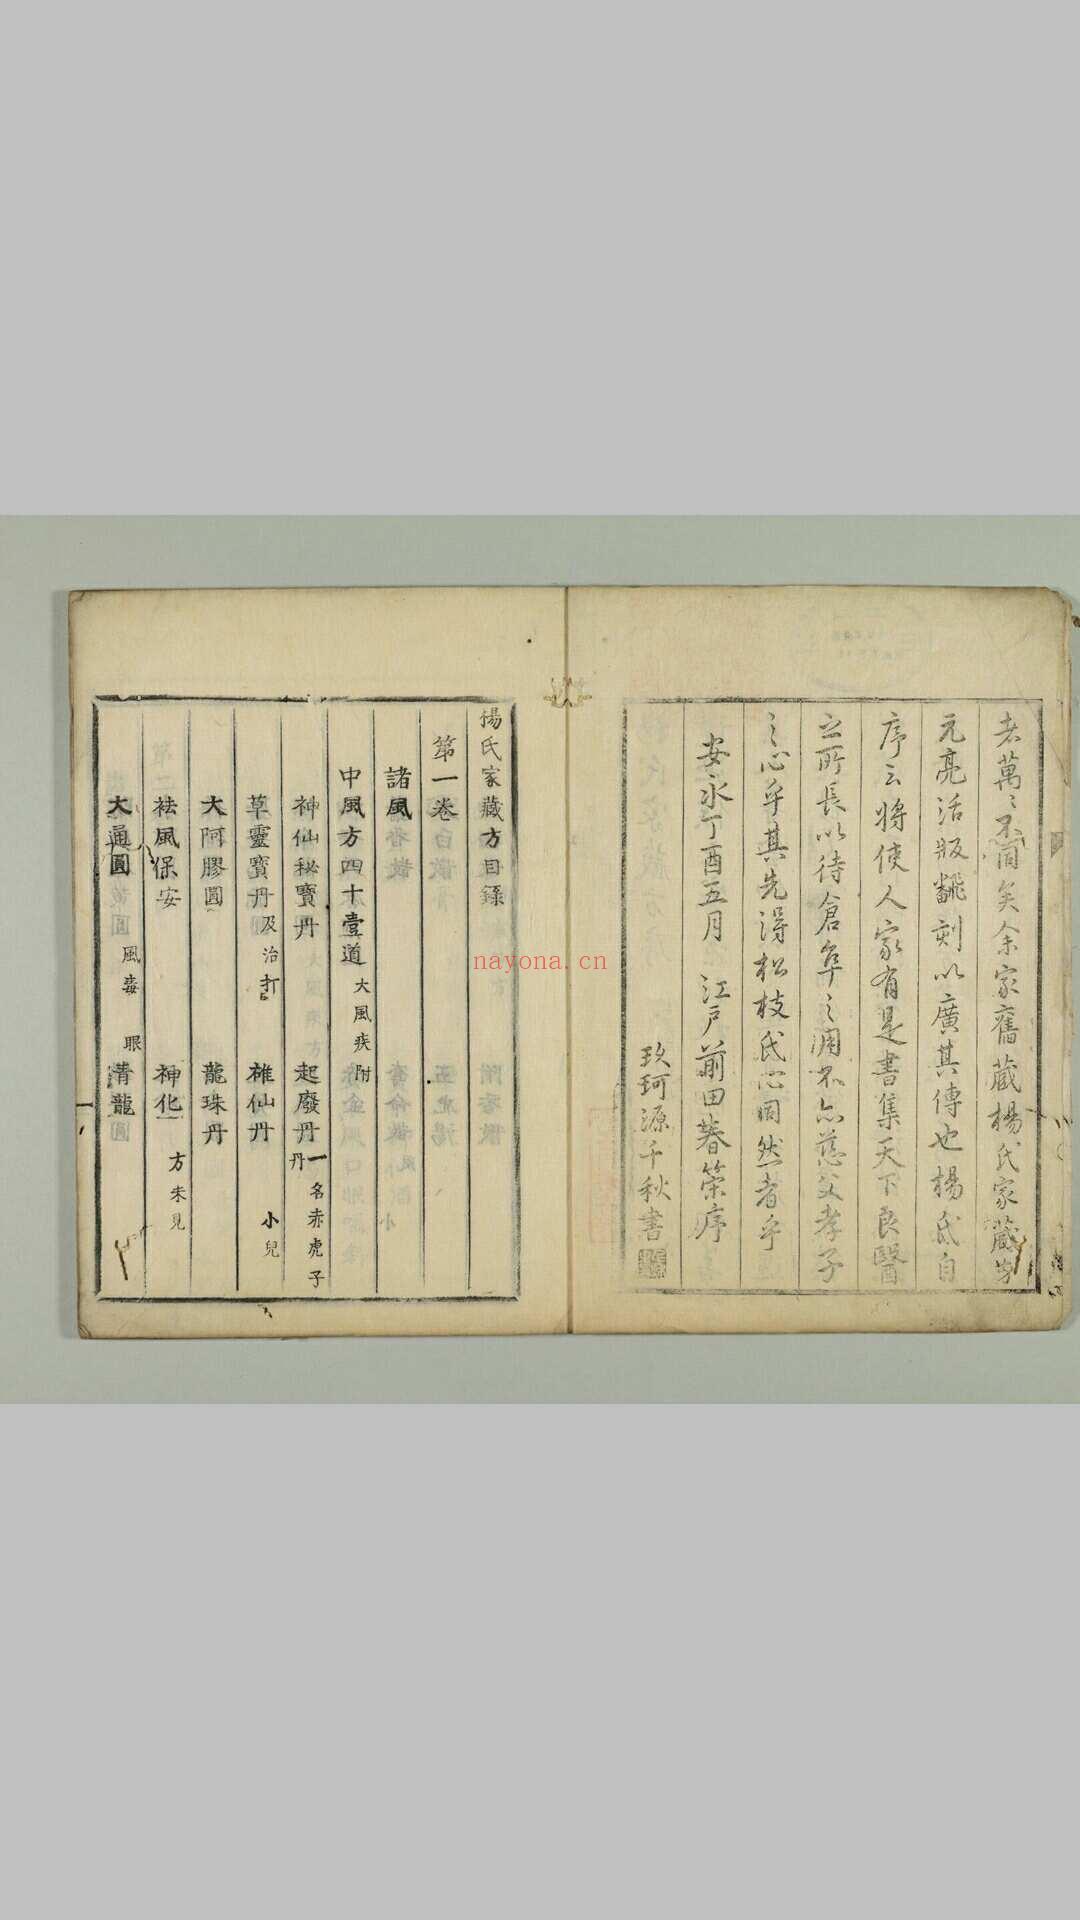 者萬〻不同矣余家舊蔵楊氏家蔵方
元亮活版翻刻以廣其傳也楊氏自
序云將使人家有是書集天下良醫
之所長以待倉卒之用不亦慈父孝子
之心乎其先得松枝氏心同然者乎
安永丁酉五月 江戸前田
序
玖珂源千秋書
楊氏家藏方目錄
第一卷
諸風
中風方四十壹道 大風疾附
神仙秘寶丹 起廢丹 一名赤虎子丹
草靈寶丹 及治打 椎仙丹 小兒
大阿膠圓 龍珠丹
祛風保安 神化 方未見
大通圓 風毒 眼 青龍
nayona.cn